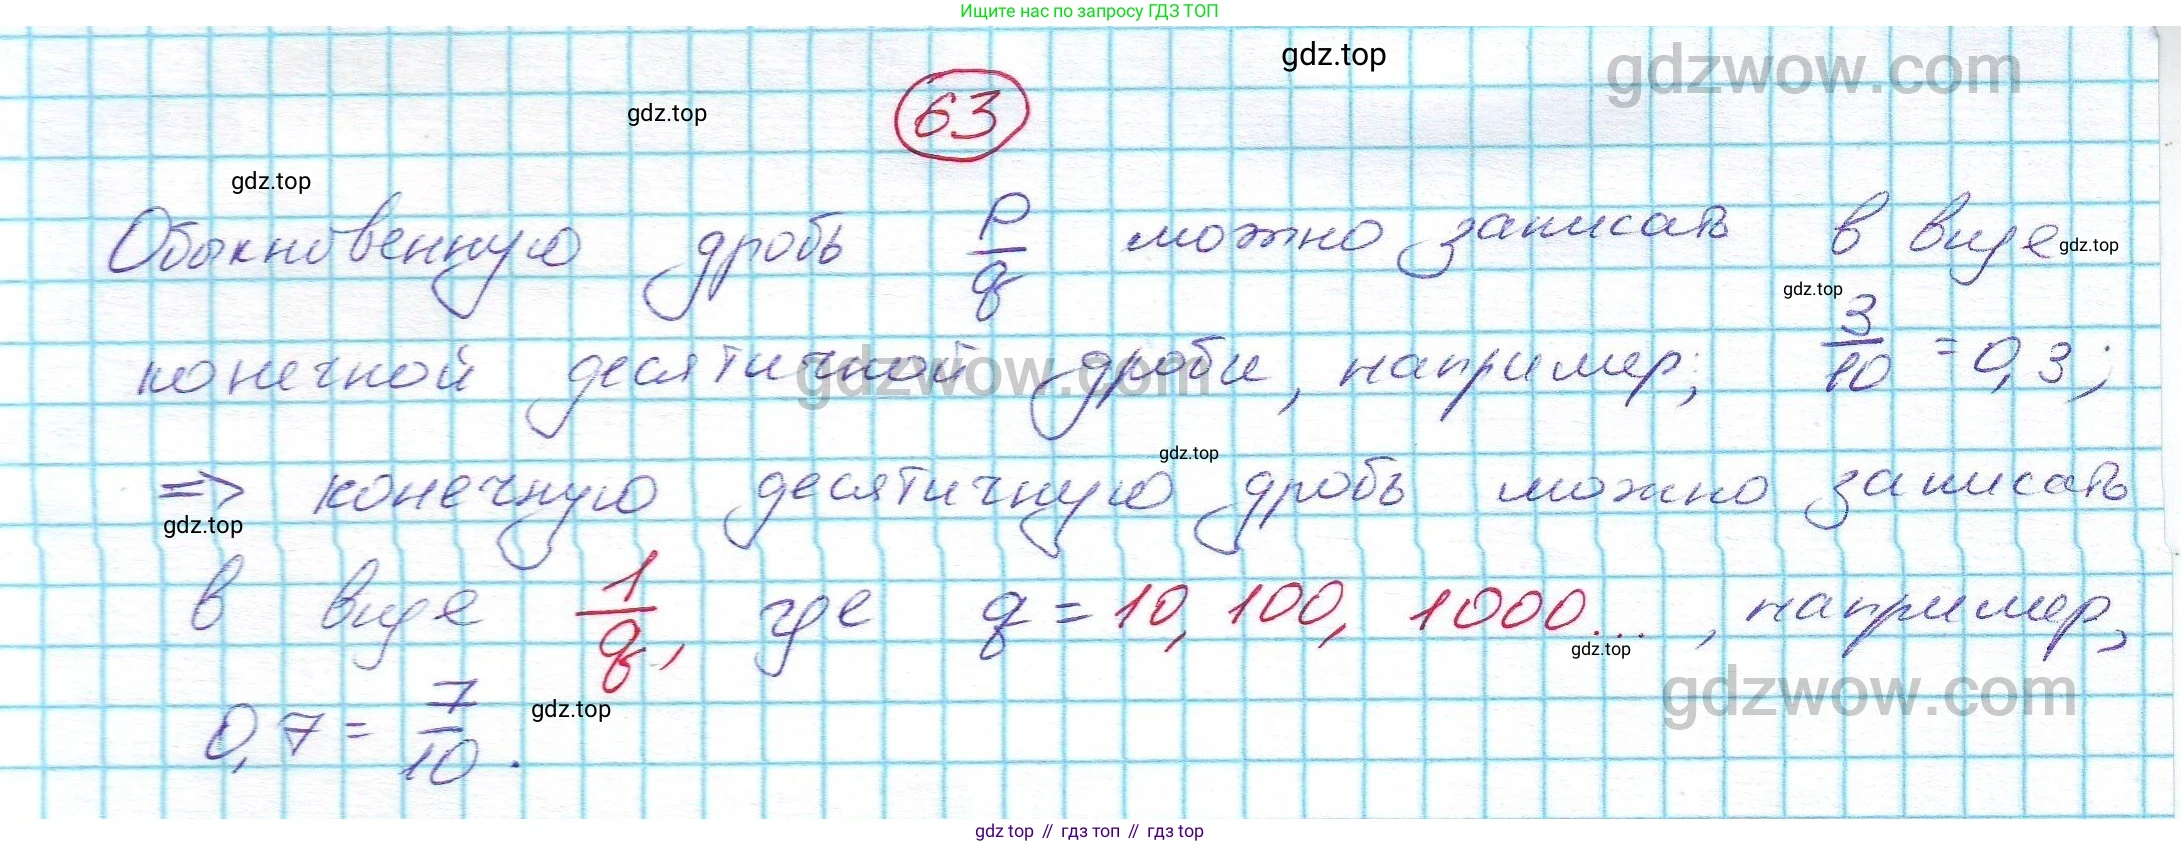 Ищите нас по запросу ГДЗ ТОП
gdz.top
gdzwow.com
gdz.top
63
gdz.top
Обыкновенную дробь p/q можно записать в виде
gdz.top
gdz.top
конечной десятичной дроби, например; 3/10 = 0,3;
gdzwow.com
gdz.top
=> конечную десятичную дробь можно записать
gdz.top
в виде 1/q, где q = 10, 100, 1000... , например,
gdz.top
gdzwow.com
0,7 = 7/10 .
gdz.top
gdz top // гдз топ // гдз top